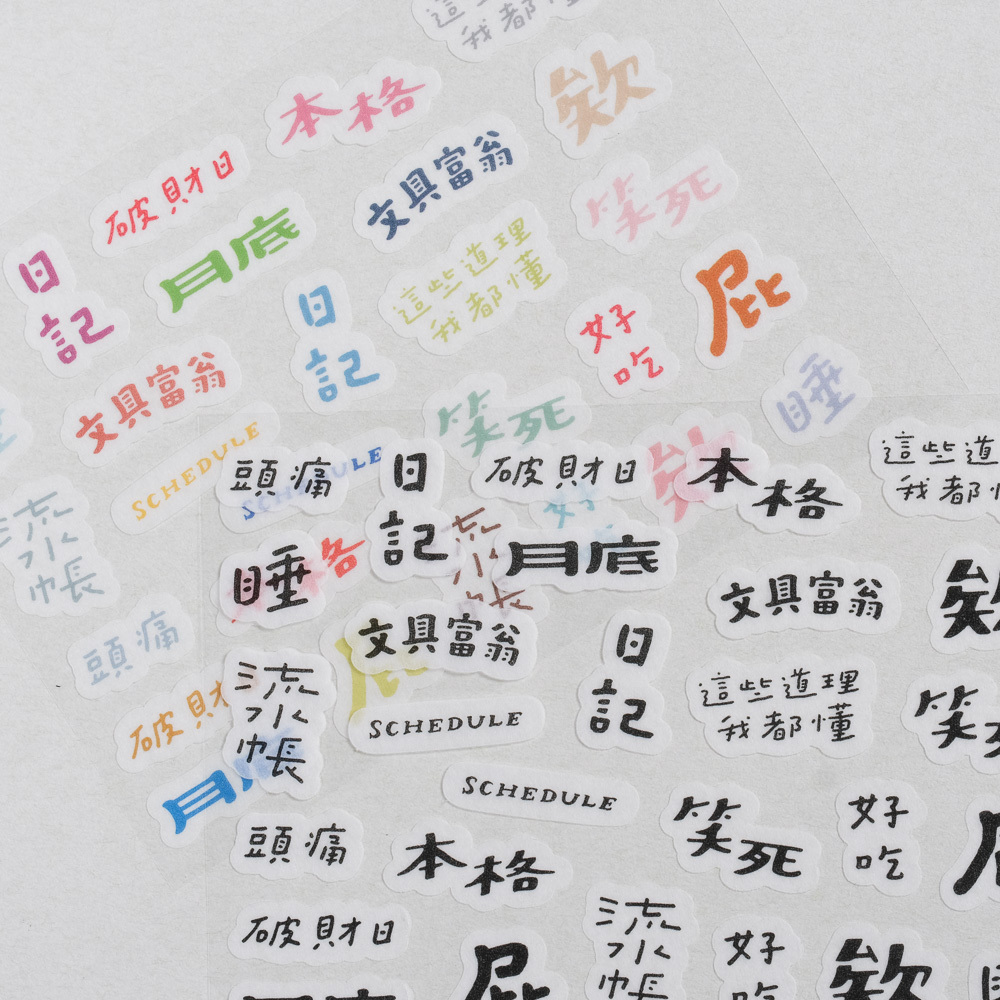 這些
我都
本格
欸
破財日
文具富翁
笑死
月底
日
記
這些道理
我都懂
屁
日
記
好
吃
文具富翁
睡
SCHEDULE
笑死
欸
流
水
帳
頭痛
SCHEDULE
日
記
破財日
好
本格
這些道
我都
睡
格
流
月底
文具富翁
欸
頭痛
文具富翁
屁
日
記
破財
流
水
帳
SCHEDULE
這些道理
我都懂
笑死
月
SCHEDULE
頭痛
本格
笑死
好
吃
屁
破財日
流
水
帳
屁
好
吃
欸
月底